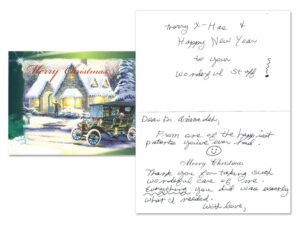 Merry Christmas
Merry X-Mas &
Happy New Year
to your
Wonderful Staff!
Dear Dr.
From one of the happiest
patients you've ever had.
Merry Christmas
Thank you for taking such
wonderful care of me.
Everything you did was exactly
what I needed.
With love,